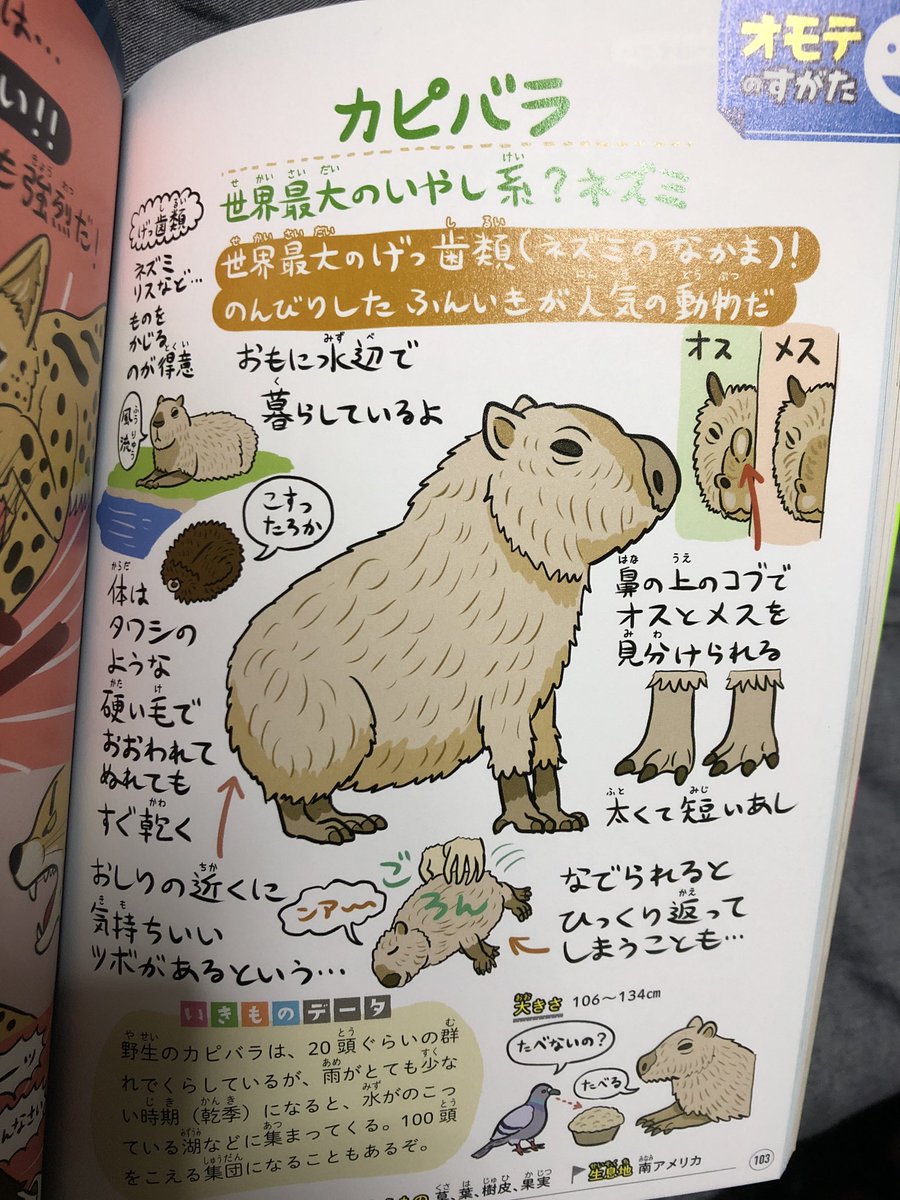 は…
い!!
も強烈だ!
オモテ
のすがた
カピバラ
世界最大のいやし系?ネズミ
世界最大のげっ歯類(ネズミのなかま)!
のんびりした ふんいきが人気の動物だ
げっ歯類
ネズミ
リスなど…
ものを
かじる
のが得意
おもに水辺で
暮らしているよ
風流
オス
メス
こすっ
たろか
体は
タワシの
ような
硬い毛で
おおわれて
ぬれても
すぐ乾く
鼻の上のコブで
オスとメスを
見分けられる
太くて短いあし
おしりの近くに
気持ちいい
ツボがあるという…
ンア〜〜
ごろん
なでられると
ひっくり返って
しまうことも…
いきものデータ
野生のカピバラは、20頭ぐらいの群
れでくらしているが、雨がとても少な
い時期(乾季)になると、水がのこっ
ている湖などに集まってくる。100頭
をこえる集団になることもあるぞ。
大きさ 106〜134cm
たべないの?
たべる
生息地 南アメリカ
草、葉、樹皮、果実
103